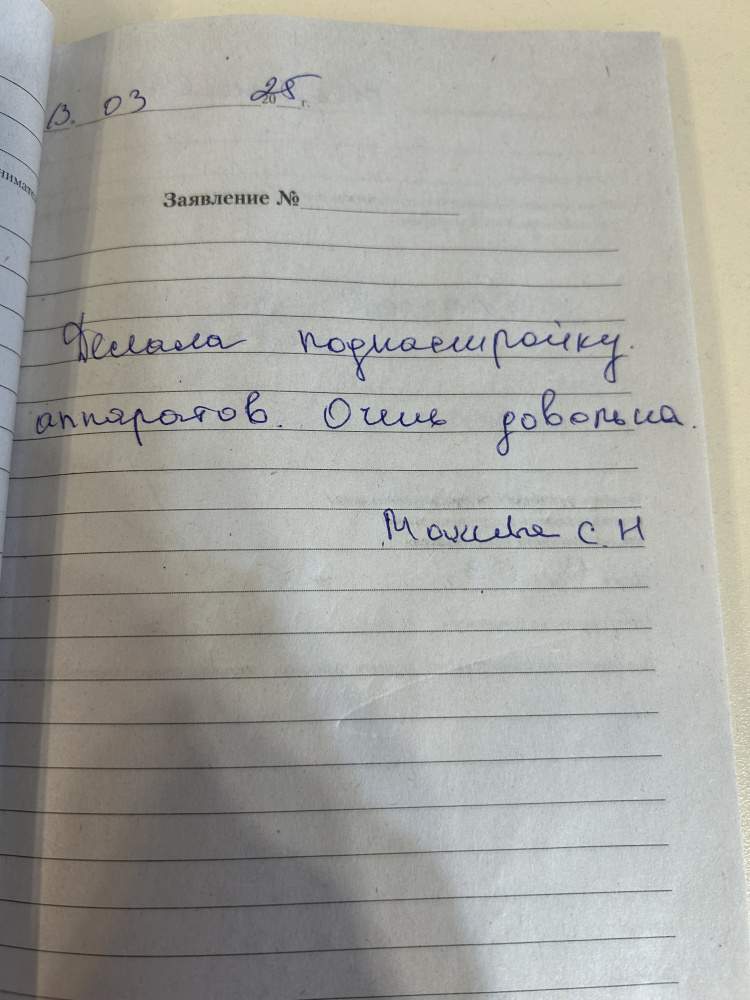 13. 03 2025 г.
Заявление №
Делала поднастройку.
аппаратов. Очень довольна.
С. Н